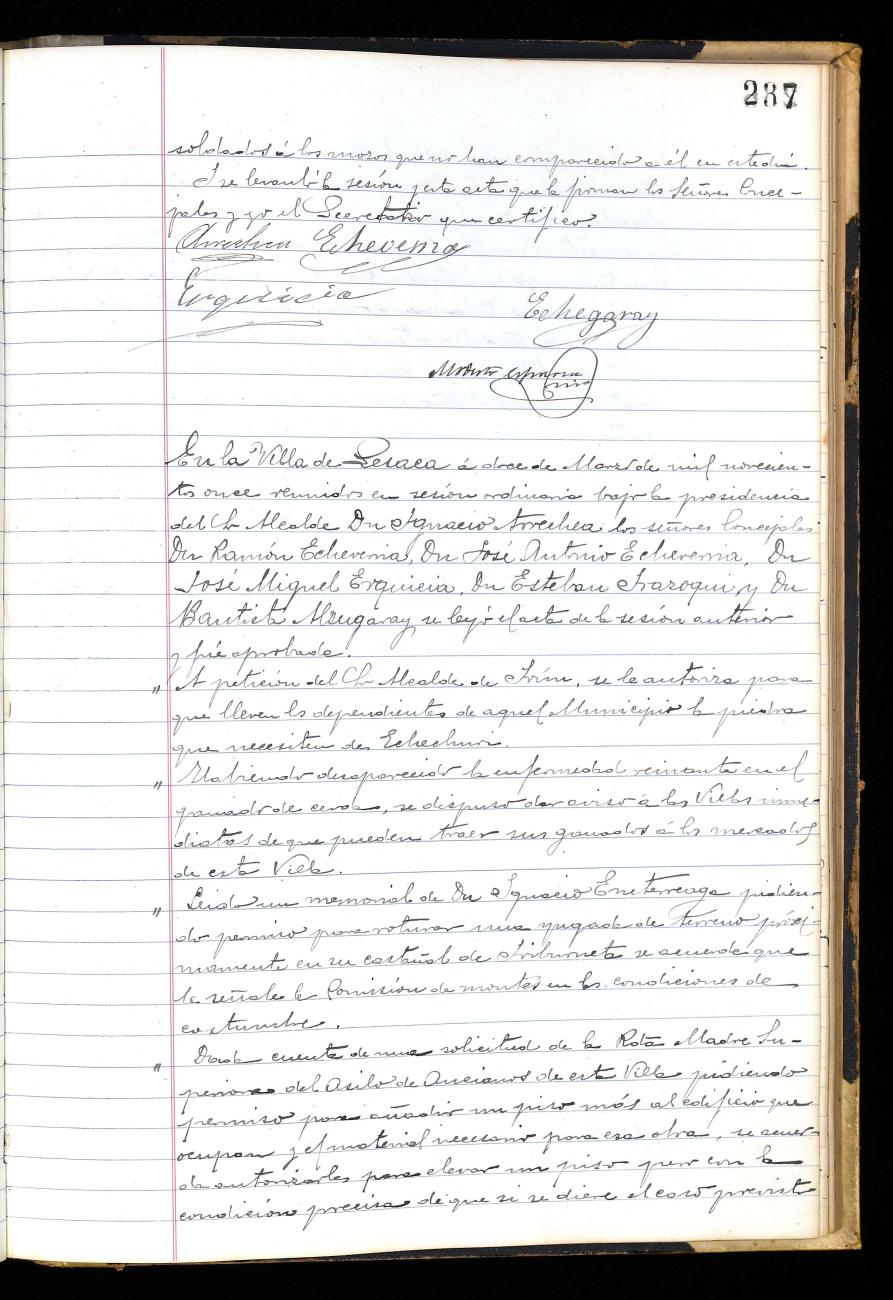 287
soldados á los mozos que no han comparecido a él en este dia.
Y se levantó la sesión y esta acta que la firman los Señores Conce-
jales y yo el Secretario que certifico.
Arrechea Echeverria
Erquicia
Echegaray
Modesto
En la Villa de Lesaca á doce de Marzo de mil novecien-
tos once reunidos en sesión ordinaria bajo la presidencia
del Sr Alcalde Dn Ignacio Arrechea los señores Concejales
Dn Ramón Echeverria, Dn José Antonio Echeverria, Dn
José Miguel Erquicia, Dn Esteban Irazoqui, y Dn
Bautista Alzugaray se leyó el acta de la sesión anterior
y fué aprobada.
" A petición del Sr Alcalde de Irún, se le autoriza para
que lleven los dependientes de aquel Municipio la piedra
que necesiten de Echechuri.
" Habiendo desaparecido la enfermedad reinante en el
ganado de cerda, se dispuso dar aviso á las Villas inme-
diatas de que pueden traer sus ganados á los mercados
de esta Villa.
" Leido un memorial de Dn Ignacio Eneterreaga pidien-
do permiso para roturar una yugada de terreno próxi-
mamente en su castañal de Iriburneta se acuerda que
la señale la Comisión de montes en las condiciones de
costumbre.
" Dada cuenta de una solicitud de la Rda Madre Su-
periora del Asilo de Ancianos de esta Villa pidiendo
permiso para añadir un piso más al edificio que
ocupan y el material necesario para esa obra, se acuer-
da autorizarles para elevar un piso pero con la
condición precisa de que si se diere el caso previsto